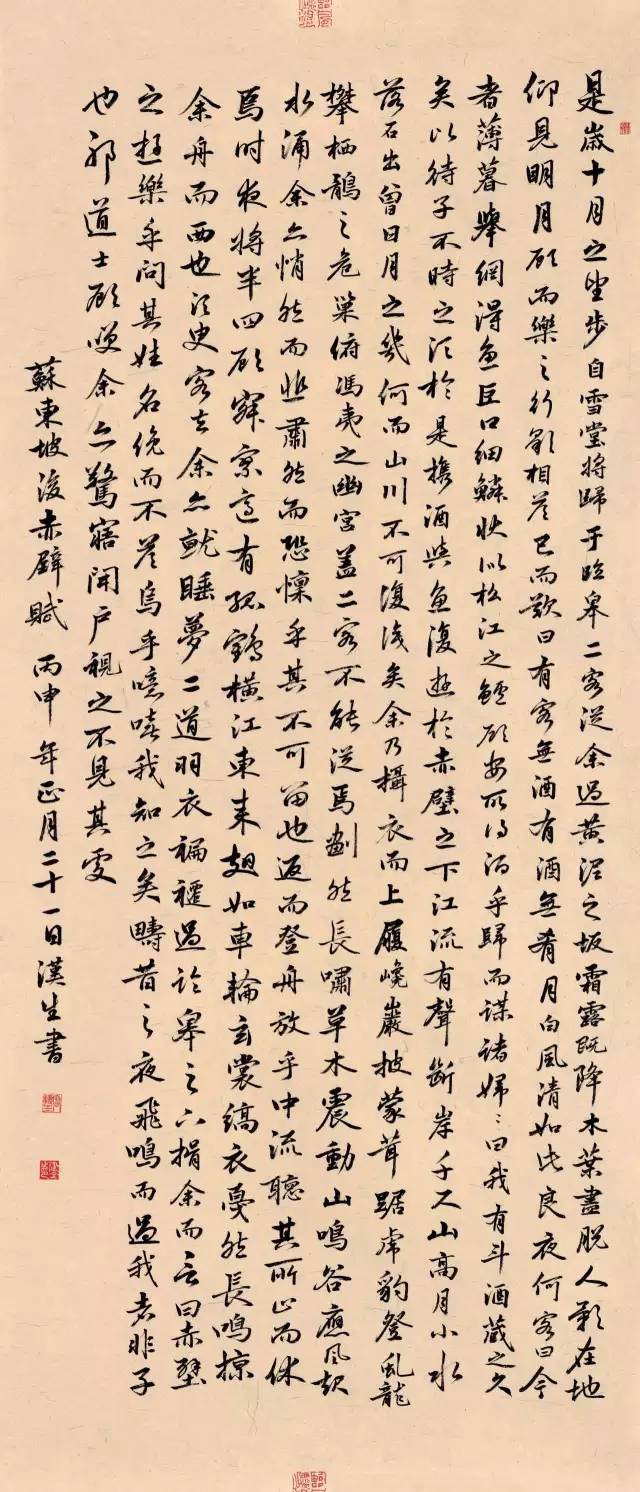 是歲十月之望步自雪堂將歸于臨皋二客從余過黃泥之坂霜露既降木葉盡脫人影在地
仰見明月顧而樂之行歌相答已而歎曰有客無酒有酒無肴月白風清如此良夜何客曰今
者薄暮舉網得魚巨口細鱗狀似松江之鱸顧安所得酒乎歸而謀諸婦〻曰我有斗酒藏之久
矣以待子不時之須於是攜酒與魚復遊於赤壁之下江流有聲斷岸千尺山高月小水
落石出曾日月之幾何而山川不可復識矣余乃攝衣而上履巉巖披蒙茸踞虎豹登虬龍
攀栖鶻之危巢俯馮夷之幽宮蓋二客不能從焉劃然長嘯草木震動山鳴谷應風起
水涌余亦悄然而悲肅然而恐懍乎其不可留也返而登舟放乎中流聽其所止而休
焉時夜將半四顧寂寥適有孤鶴橫江東來翅如車輪玄裳縞衣戛然長鳴掠
余舟而西也須臾客去余亦就睡夢二道羽衣蹁躚過臨皋之下揖余而言曰赤壁
之遊樂乎問其姓名俛而不答烏乎噫嘻我知之矣疇昔之夜飛鳴而過我者非子
也邪道士顧笑余亦驚寤開戶視之不見其處
蘇東坡後赤壁賦 丙申年正月二十一日漢生書